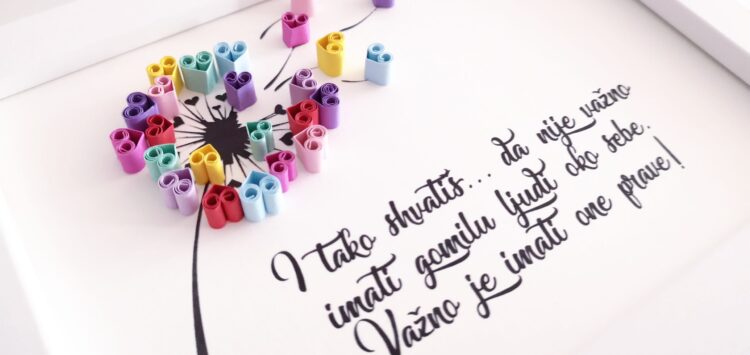 I tako shvatiš... da nije važno
imati gomilu ljudi oko sebe.
Važno je imati one prave!